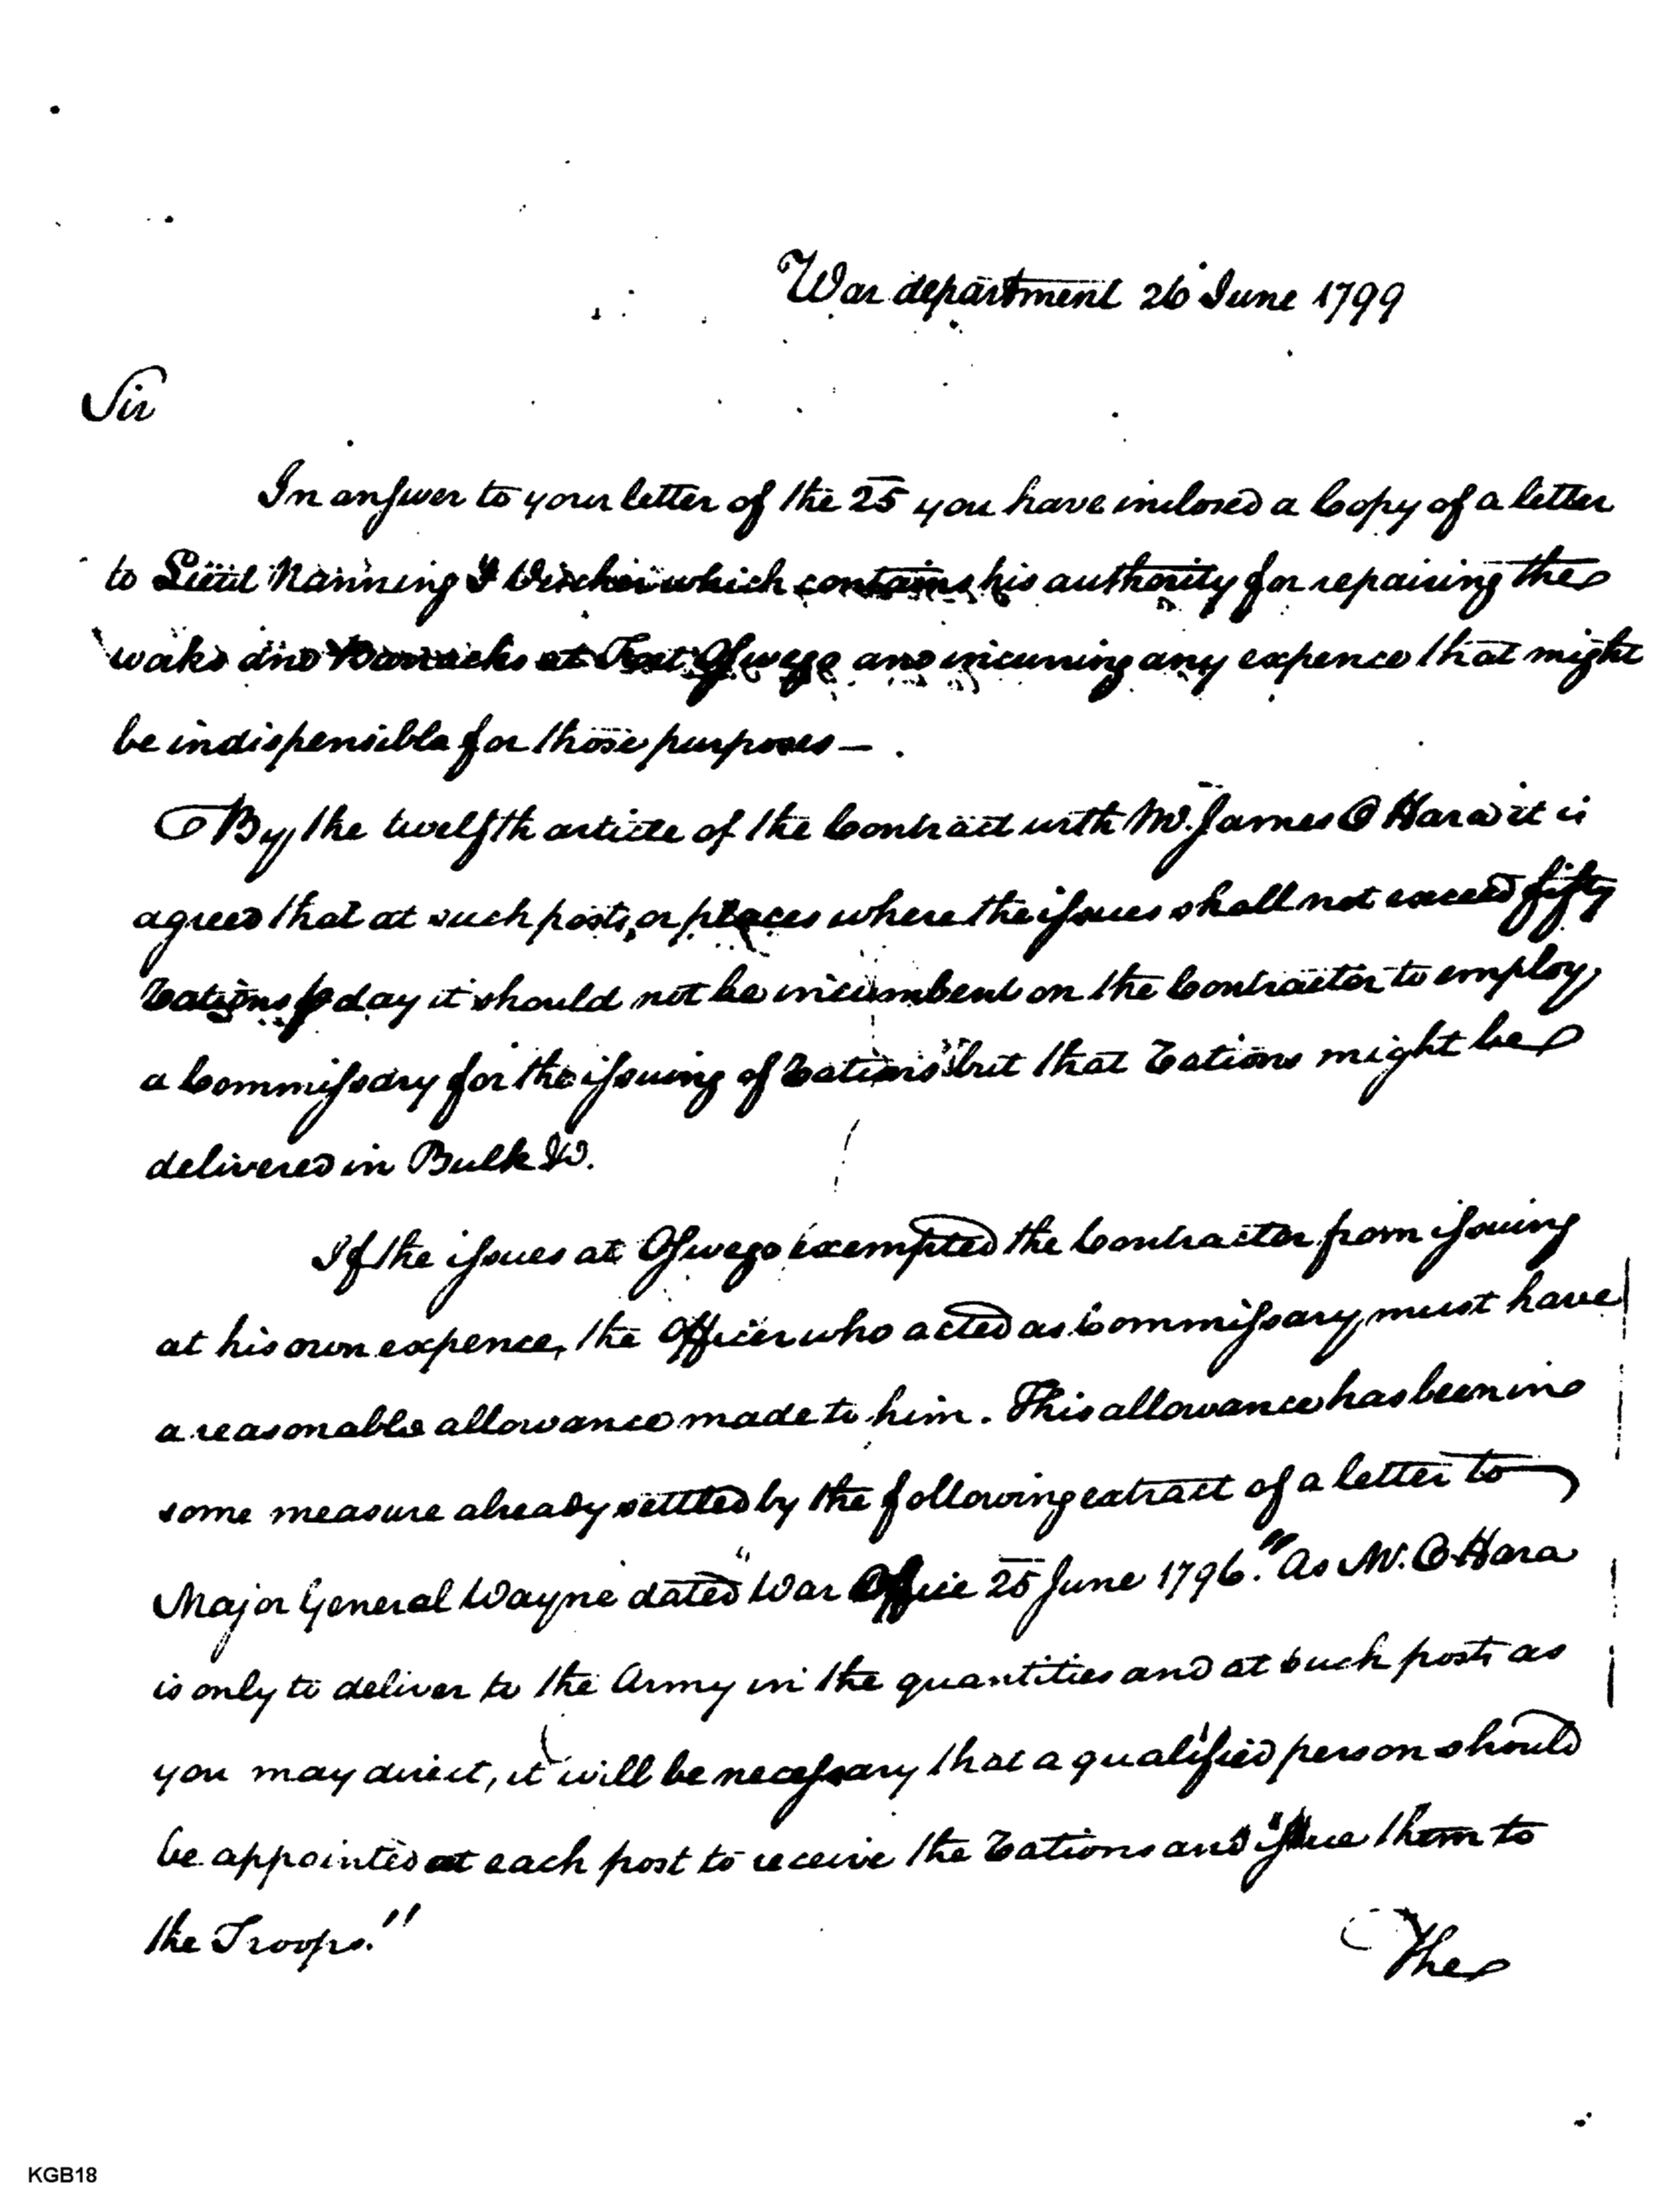 War department 26 June 1799
Sir
In answer to your letter of the 25 you have inclosed a Copy of a letter
to Lieut Nanning J Vischer which contains his authority for repairing the
works and Barracks at Fort Oswego and incurring any expence that might
be indispensible for those purposes — .
By the twelfth article of the Contract with Mr. James O Hara it is
agreed that at such posts, or places where the issues shall not exceed fifty
rations p day it should not be incumbent on the Contractor to employ
a Commissary for the issuing of rations" but that rations might be
delivered in Bulk &c.
If the issues at Oswego exempted the Contractor from issuing
at his own expence, the Officer who acted as Commissary, must have
a reasonable allowance made to him. This allowance has been in
some measure already settled by the following extract of a letter to
Major General Wayne dated "War Office 25 June 1796." As Mr. O Hara
is only to deliver to the Army in the quantities and at such posts as
you may direct, it will be necessary that a qualified person should
be appointed at each post to receive the rations and issue them to
the Troops."
The
KGB18